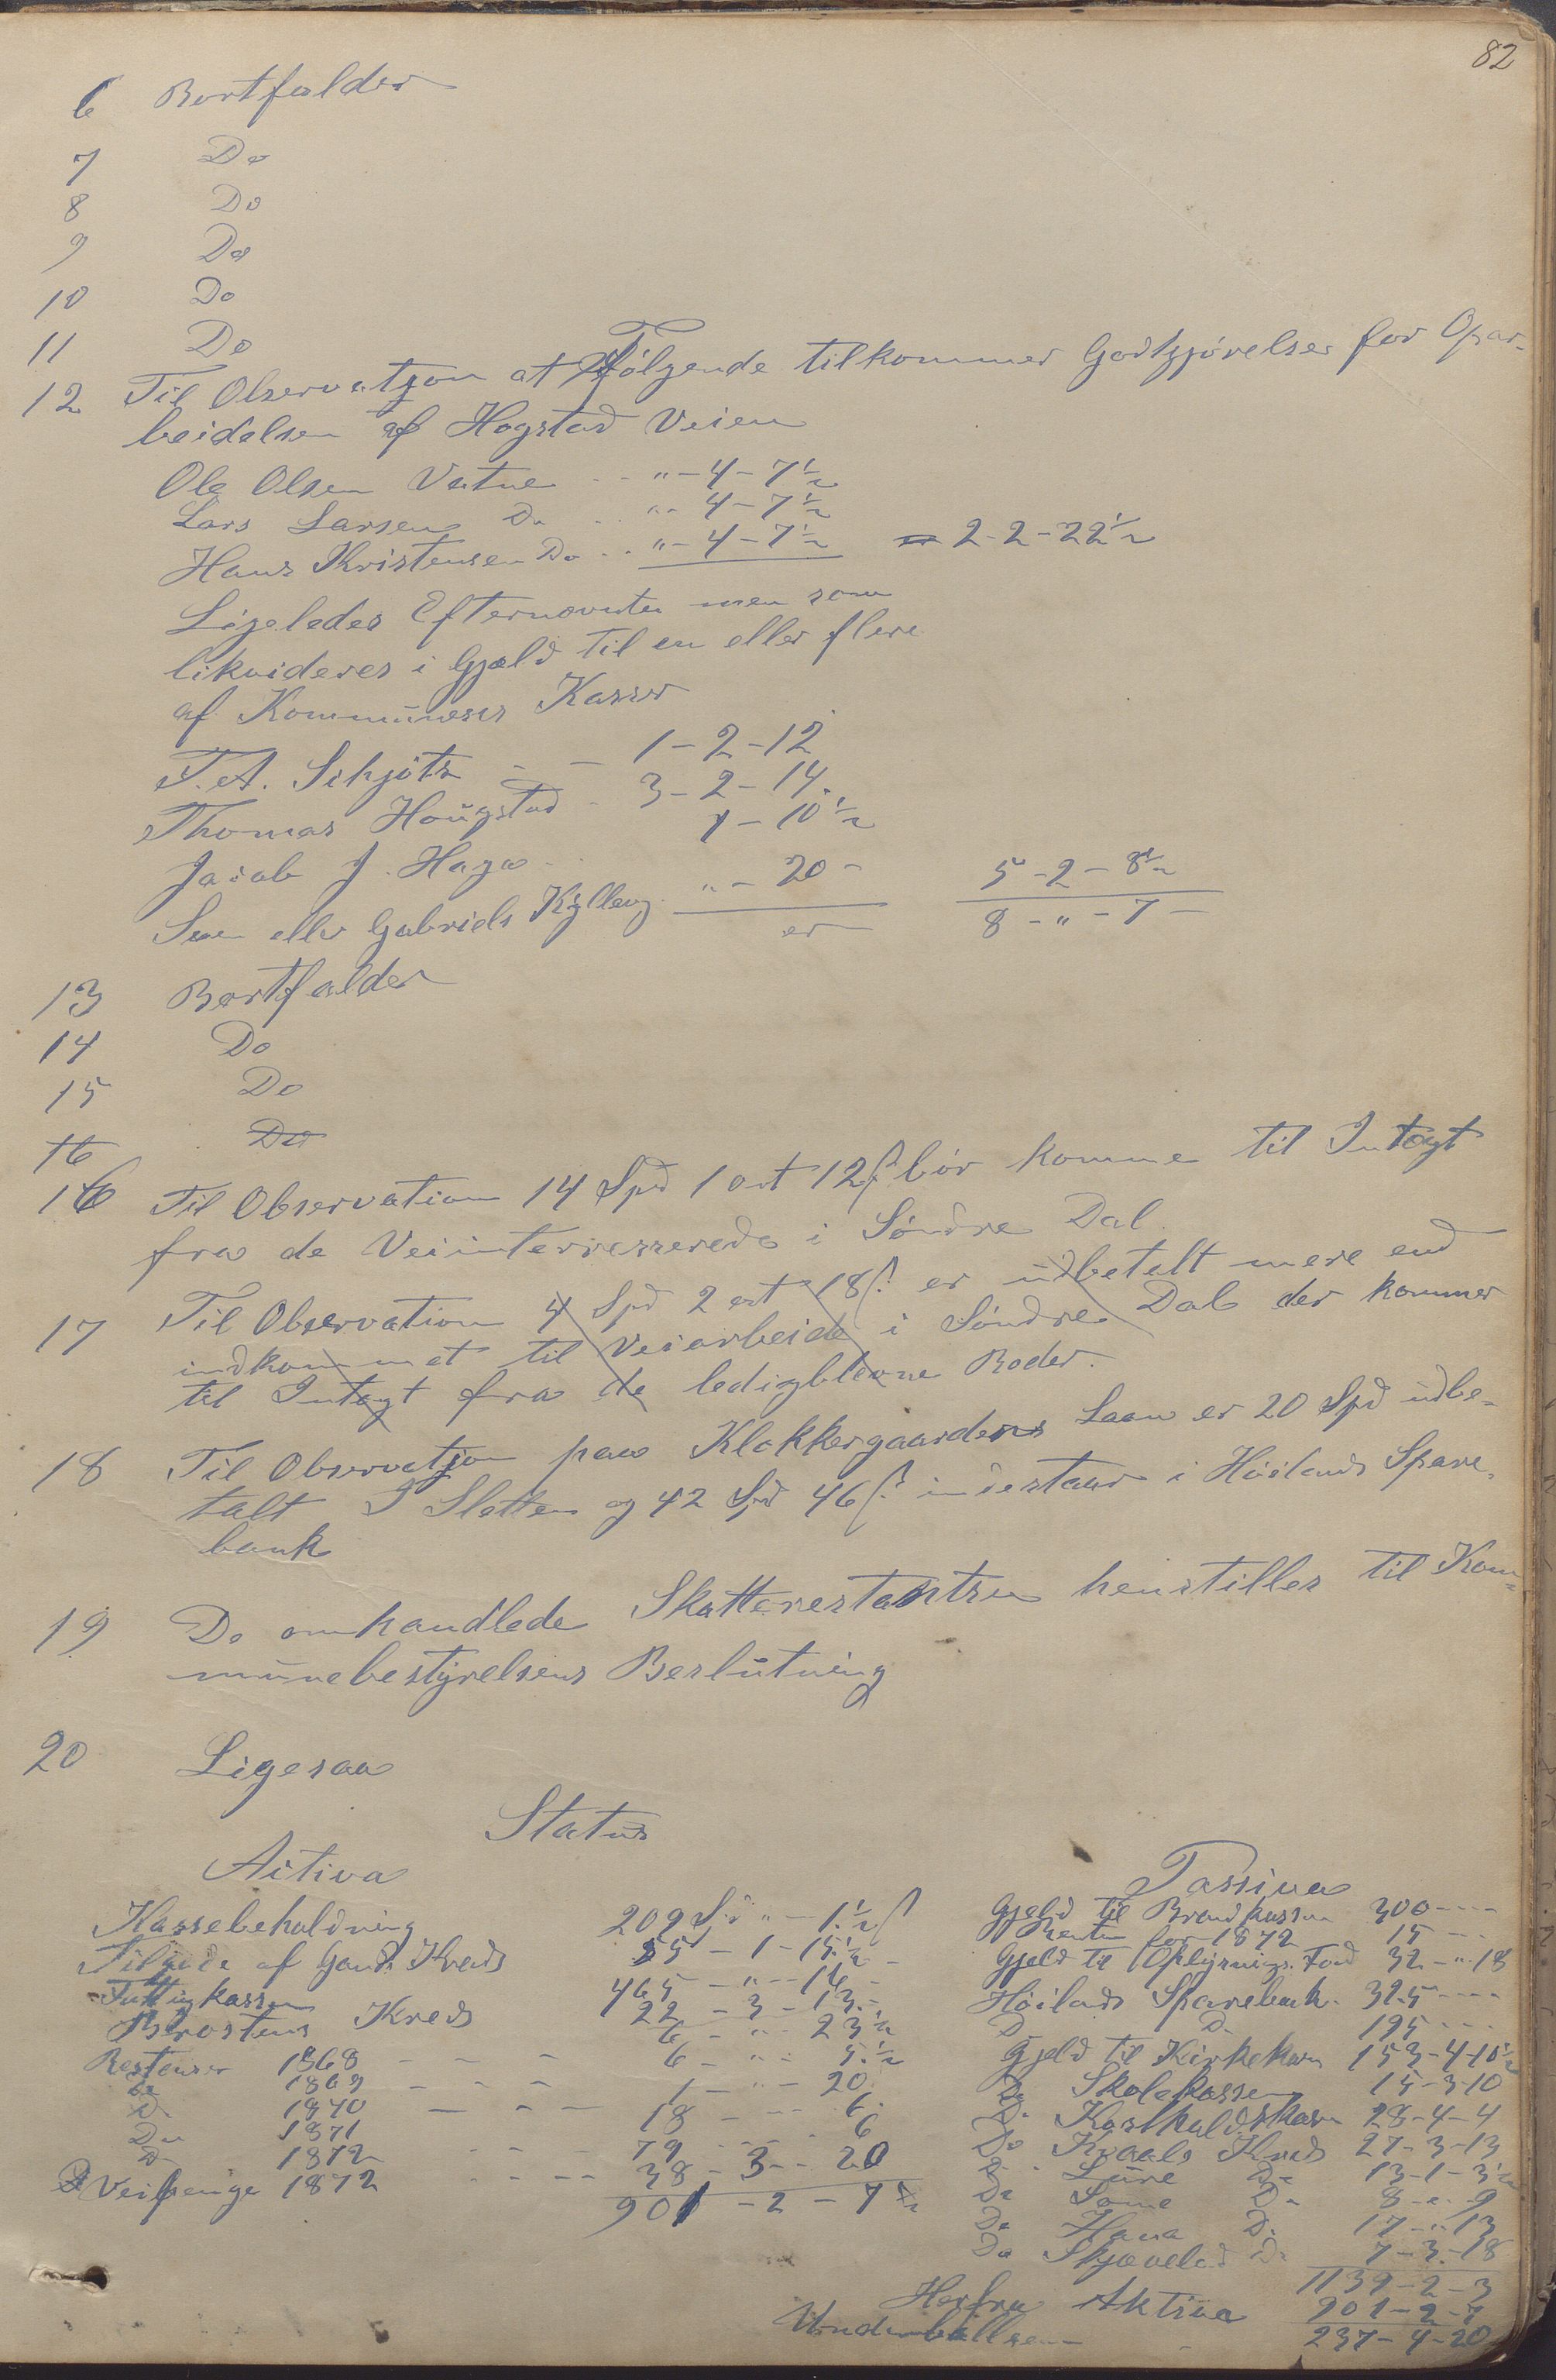 82
6 Bortfalder
7 Do
8 Do
9 Do
10 Do
11 Do
12 Til Observatjon at Følgende tilkommer Godtgjørelser for Opar-
beidelsen af Hogstad Veien
Ole Olsen Vatne .. " - 4 - 7 1/2
Lars Larsen Do .. " - 4 - 7 1/2
Hans Kristensen Do .. " - 4 - 7 1/2 2 - 2 - 22 1/2
Ligeledes Efternævnte men som
likvideres i Gjæld til en eller flere
af Kommunens Kasser
T. A. Schjøts - - 1 - 2 - 12
Thomas Hougstad - 3 - 2 - 14.
Jacob J. Haga - 1 - 10 1/2
Sven eller Gabriels Kylleng " - 20 - 5 - 2 - 8 1/2
er 8 - " - 7 -
13 Bortfalder
14 Do
15 Do
16 Do
16 Til Observation 14 Spd 1 ort 12 s bør komme til Intægt
fra de Veiinterresserede i Søndre Dal
17 Til Observation 4 Spd 2 ort 18 s er udbetalt mere end
indkommet til Veiarbeide i Søndre Dal der kommer
til Intægt fra de ledigblevne Roder.
18 Til Observatjon paa Klokkergaardens Laan er 20 Spd udbe-
talt I Sletten og 42 Spd 46 s indestaar i Høilands Spare-
bank
19 De omhandlede Skatterestantsen henstilles til Kom-
munebestyrelsens Beslutning
20 Ligesaa
Status
Activa Passiva
Kassebeholdning 209 Spd " - 1 1/2 s
Tilgode af Gands Kreds 55 - 1 - 15 1/2 -
Fattigkassen 465 - " - 14 -
Brostens Kreds 22 - 3 - 13 -
Restenser 1868 - - - 6 - " - 23 1/2
Do 1869 - - - 6 - " - 5 1/2
Do 1870 - - - 1 - " - 20
Do 1871 18 - - - 6
Do 1872 - - - 79 - - 6
Veipenge 1872 - - - - 38 - 3 - - 20
901 - 2 - 7 1/2
Gjeld til Brandkassen 300 - - - -
Renten for 1872 15 - - -
Gjeld til Oplysnings Fond 32 - " - 18
Høilands Sparebank 325 - - - -
Do Do 195 - - -
Gjeld til Kirkekasen 153 - 4 - 10 1/2
Do Skolekassen 15 - 3 - 10
Do Kostholdskasen 28 - 4 - 4
Do Kvaale Kreds 27 - 3 - 13
Do Lure Do 13 - 1 - 3 1/2
Do Some Do 8 - " - 9
Do Hana Do 17 - " - 13
Do Skjævelad Do 7 - 3 - 18
1139 - 2 - 3
Herfra Aktiva 901 - 2 - 7
Underballsen - 237 - 4 - 20